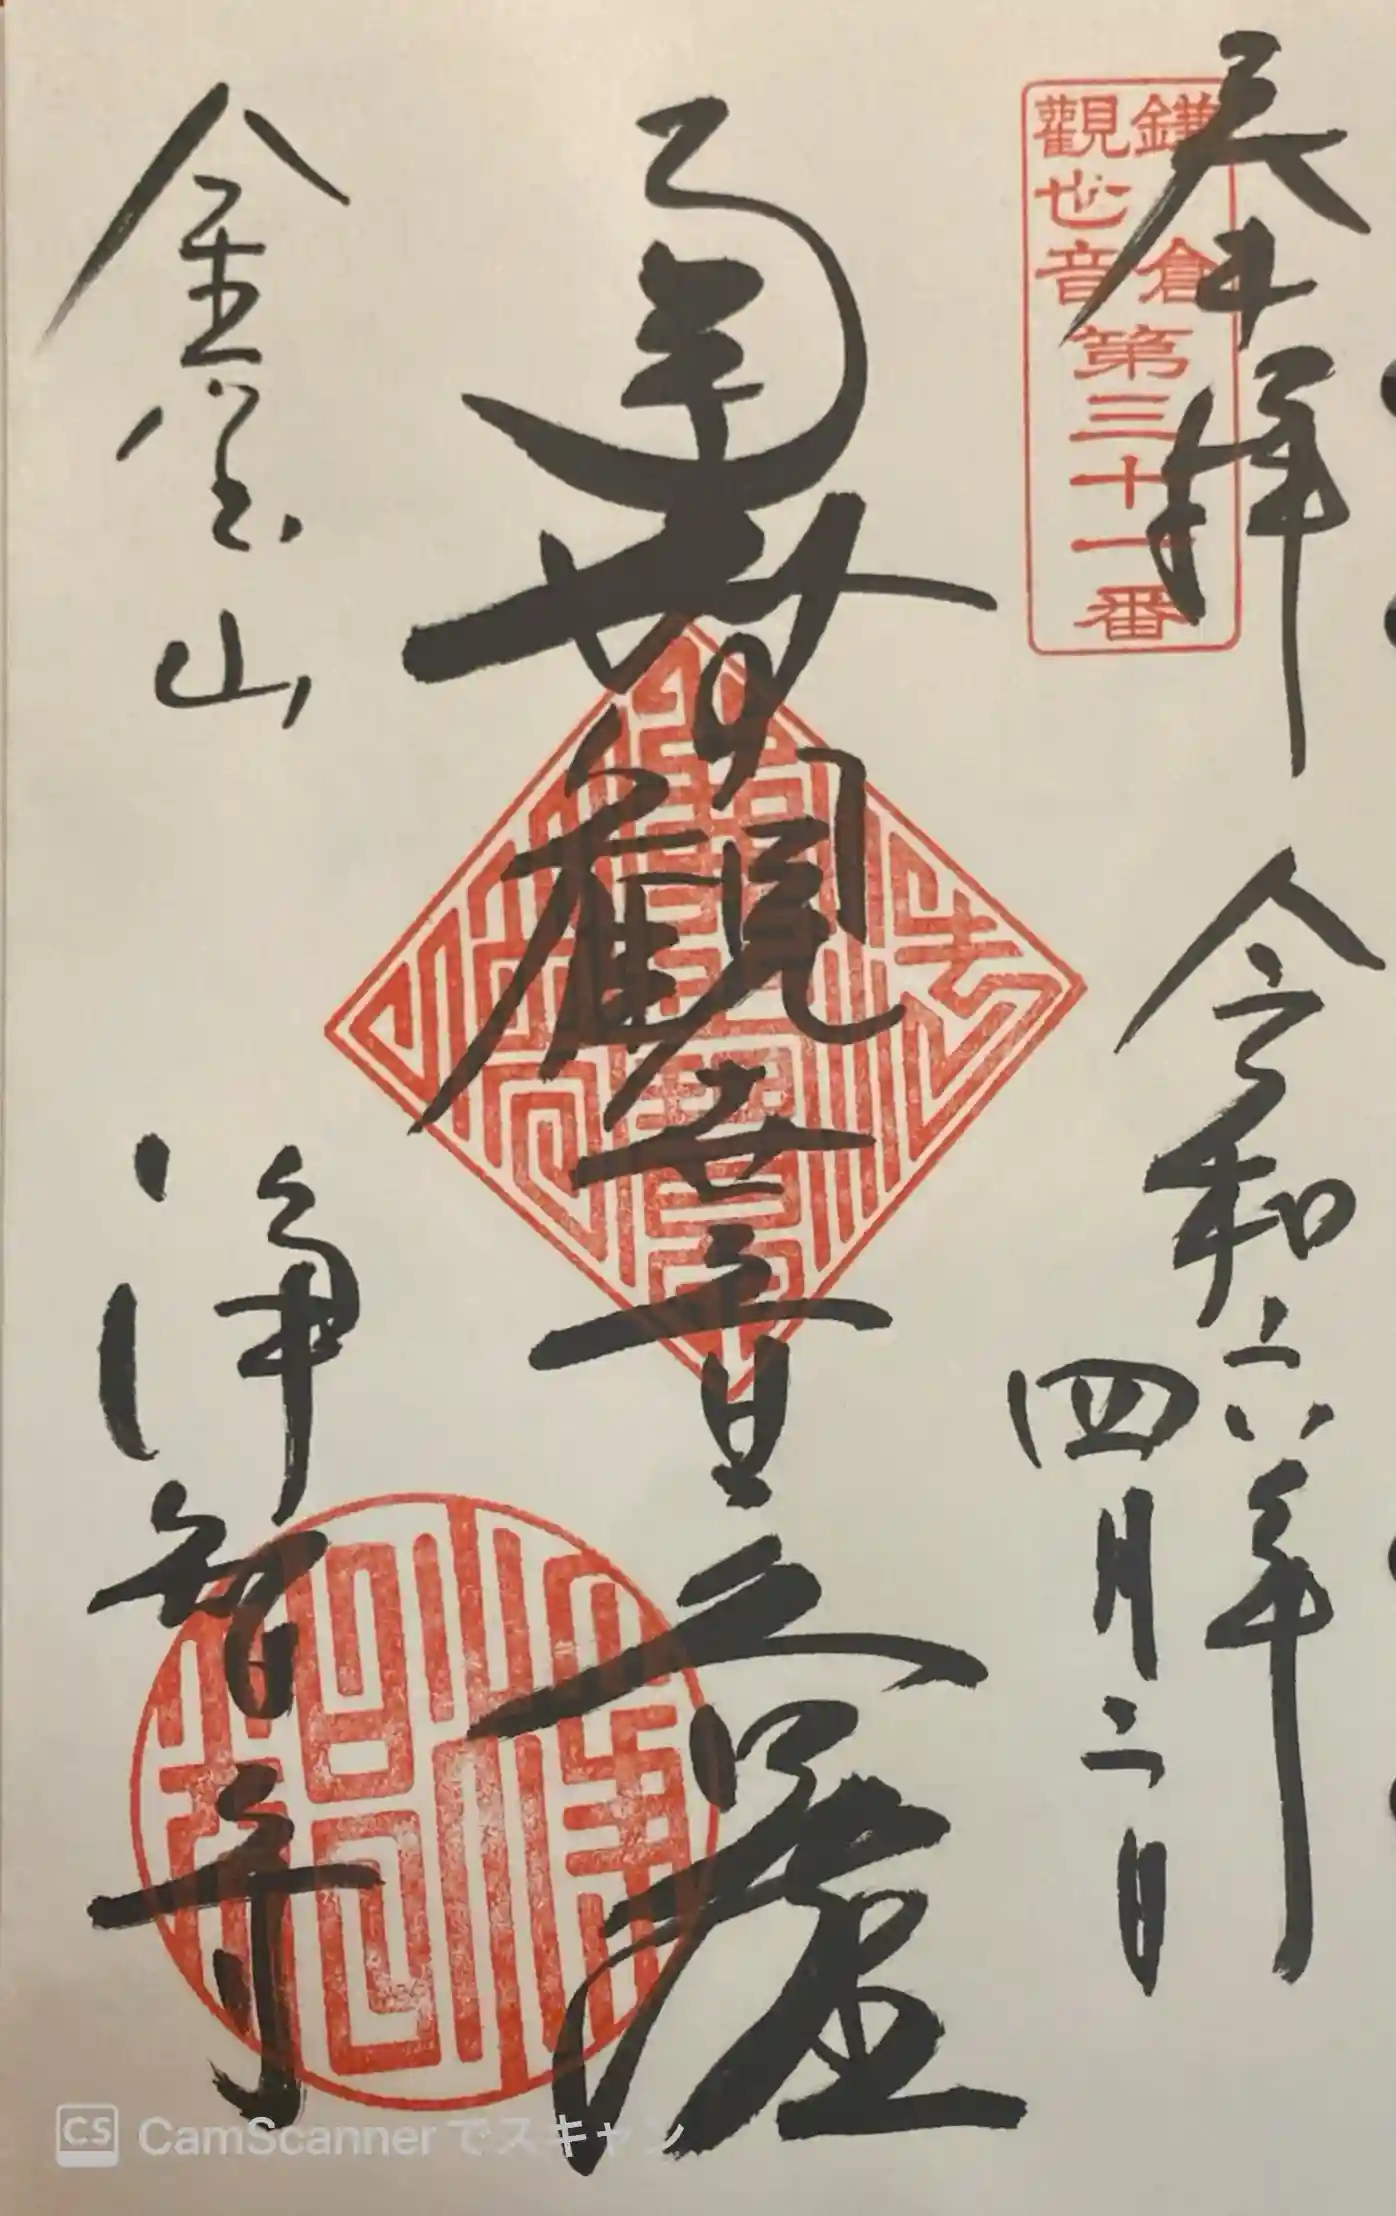 奉拝
令和六年
四月二日
鎌倉
觀世音
第三十一番
南無觀世音菩薩
金宝山
浄智寺
CS CamScanner でスキャン